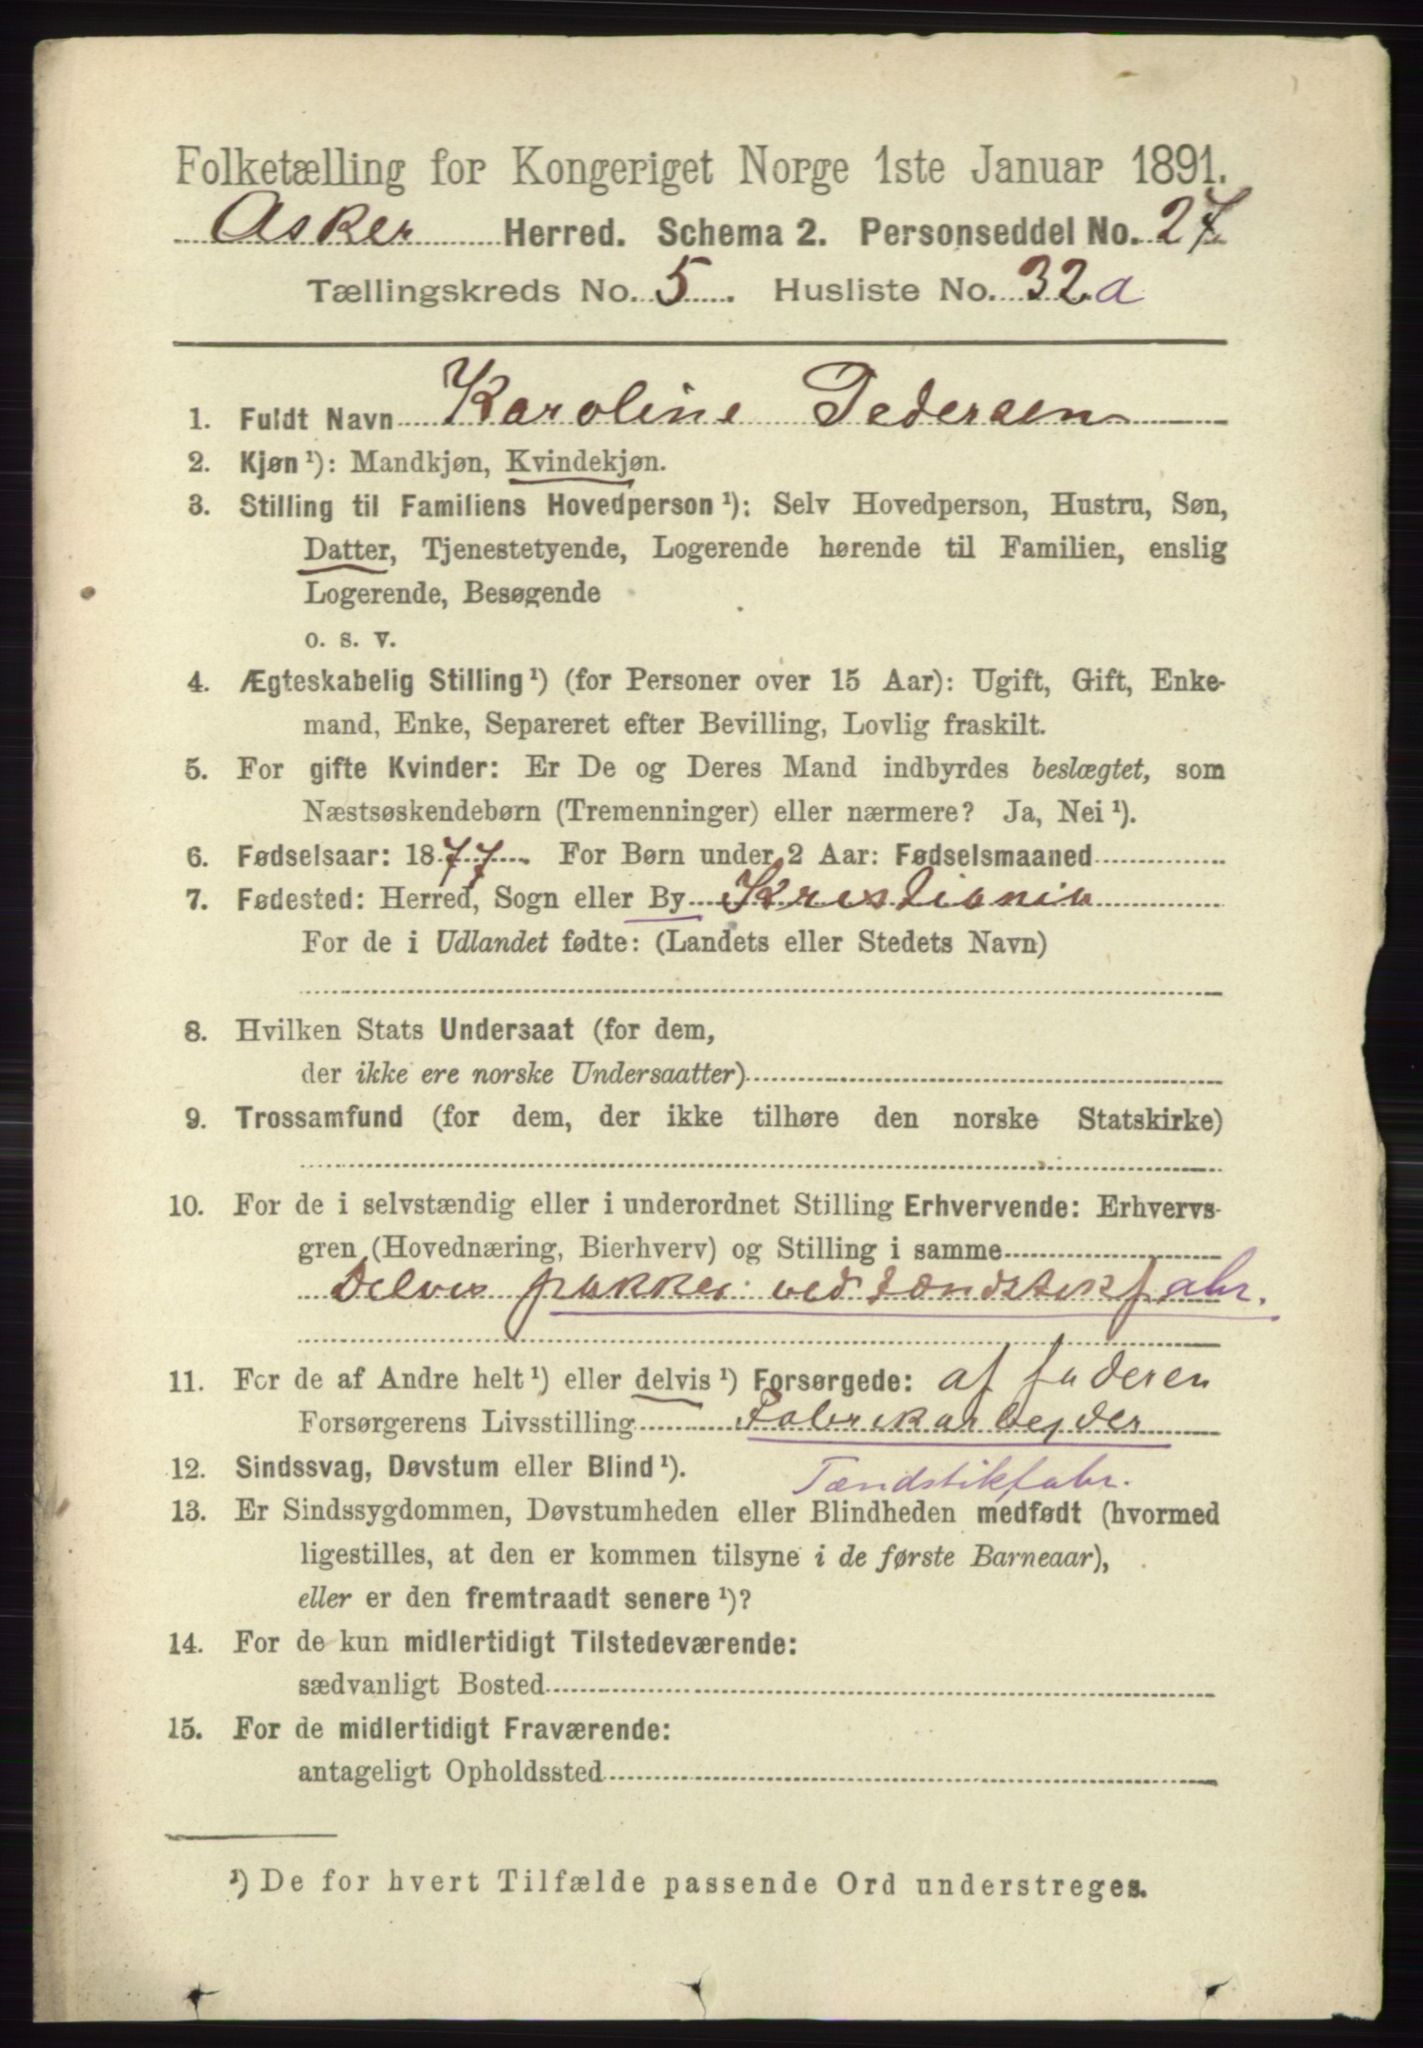 Folketælling for Kongeriget Norge 1ste Januar 1891.
Asker Herred. Schema 2. Personseddel No. 27
Tællingskreds No. 5. Husliste No. 32 a
1. Fuldt Navn Karoline Pedersen
2. Kjøn ¹): Mandkjøn, Kvindekjøn.
3. Stilling til Familiens Hovedperson ¹): Selv Hovedperson, Hustru, Søn,
Datter, Tjenestetyende, Logerende hørende til Familien, enslig
Logerende, Besøgende
o. s. v.
4. Ægteskabelig Stilling ¹) (for Personer over 15 Aar): Ugift, Gift, Enke-
mand, Enke, Separeret efter Bevilling, Lovlig fraskilt.
5. For gifte Kvinder: Er De og Deres Mand indbyrdes beslægtet, som
Næstsøskendebørn (Tremenninger) eller nærmere? Ja, Nei ¹).
6. Fødselsaar: 1877. For Børn under 2 Aar: Fødselsmaaned
7. Fødested: Herred, Sogn eller By Kristiania
For de i Udlandet fødte: (Landets eller Stedets Navn)
8. Hvilken Stats Undersaat (for dem,
der ikke ere norske Undersaatter)
9. Trossamfund (for dem, der ikke tilhøre den norske Statskirke)
10. For de i selvstændig eller i underordnet Stilling Erhvervende: Erhvervs-
gren (Hovednæring, Bierhverv) og Stilling i samme
Delvis pakker ved tændstikfabr.
11. For de af Andre helt ¹) eller delvis ¹) Forsørgede: af faderen
Forsørgerens Livsstilling Fabrikarbejder
12. Sindssvag, Døvstum eller Blind ¹). Tændstikfabr.
13. Er Sindssygdommen, Døvstumheden eller Blindheden medfødt (hvormed
ligestilles, at den er kommen tilsyne i de første Barneaar),
eller er den fremtraadt senere ¹)?
14. For de kun midlertidigt Tilstedeværende:
sædvanligt Bosted
15. For de midlertidigt Fraværende:
antageligt Opholdssted
¹) De for hvert Tilfælde passende Ord understreges.